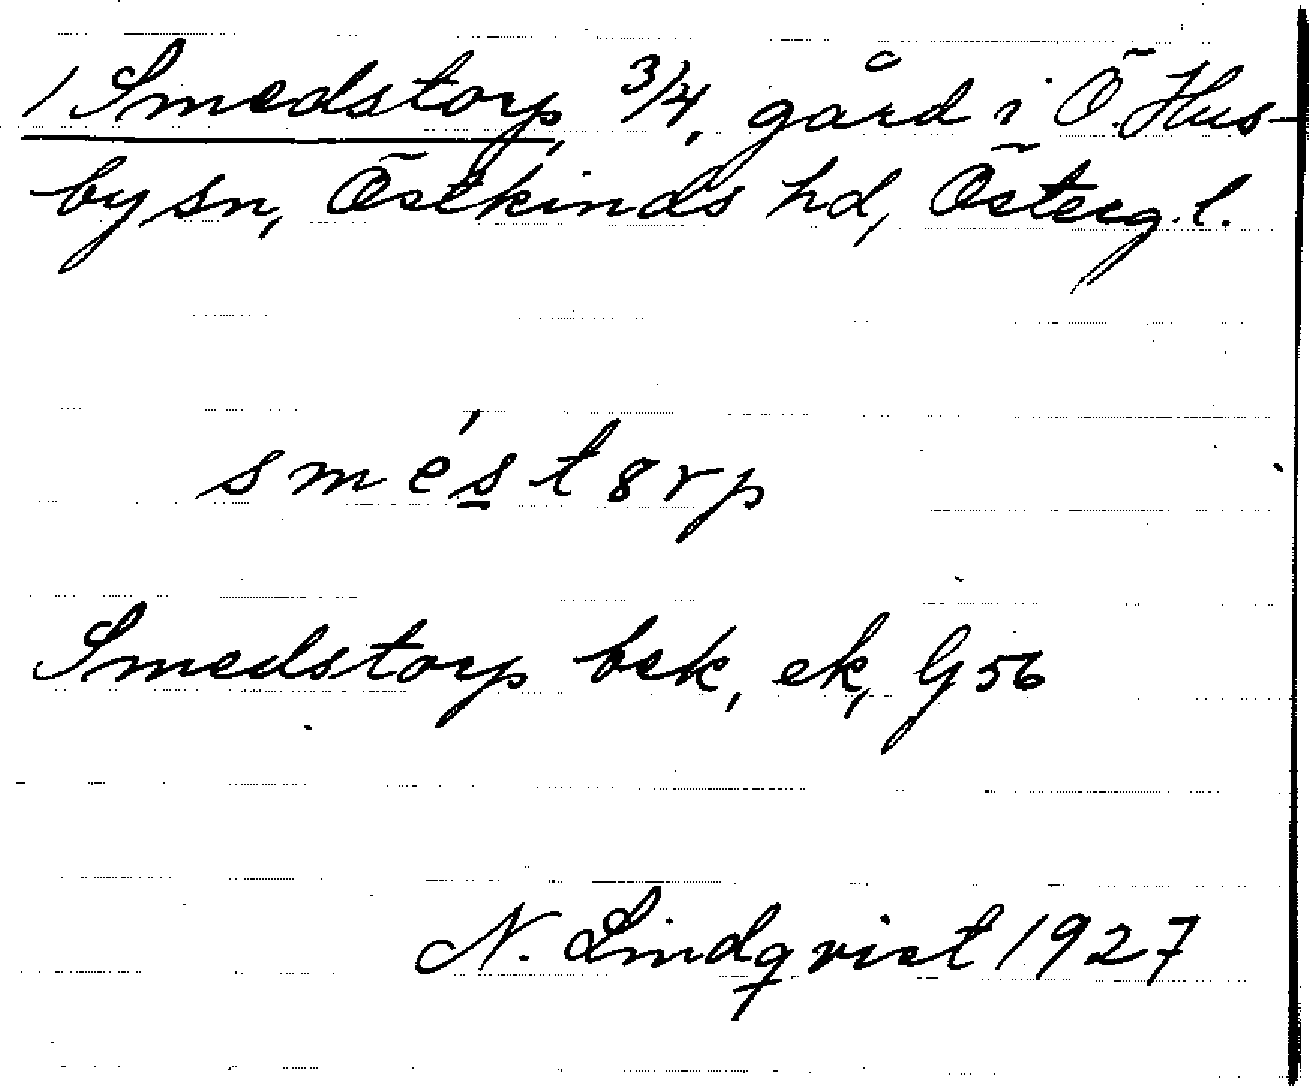 1 Smedstorp, 3/4, gård i Ö. Hus-
by sn, Östkinds hd, Österg. l.
smés̲t8rp
Smedstorp bek, ek, G 56
N. Lindqvist 1927